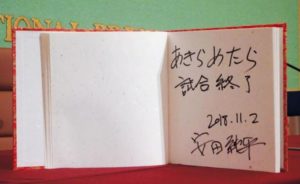 TIONAL PRE
あきらめたら
試合終了
2018.11.2
安田純平